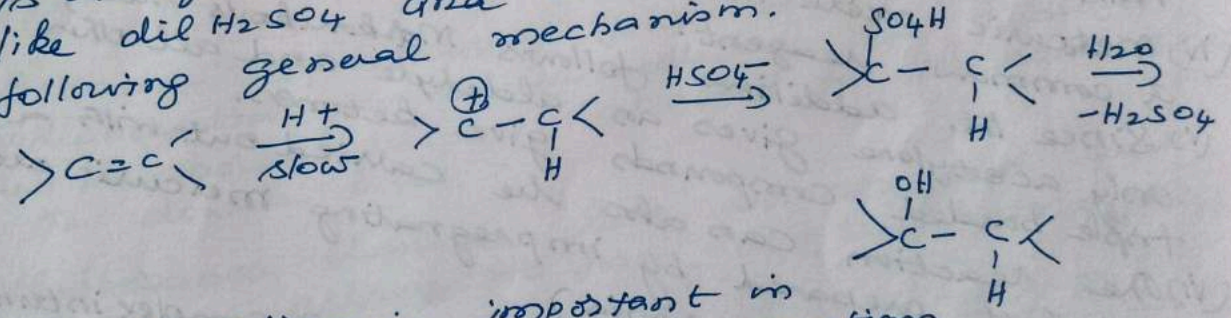 like dil H2SO4
following general mechanism.
>C=C< H+ slow → >C⊕-C(H)< HSO4- → >C(SO4H)-C(H)< H2O -H2SO4 →
>C(OH)-C(H)<
important in